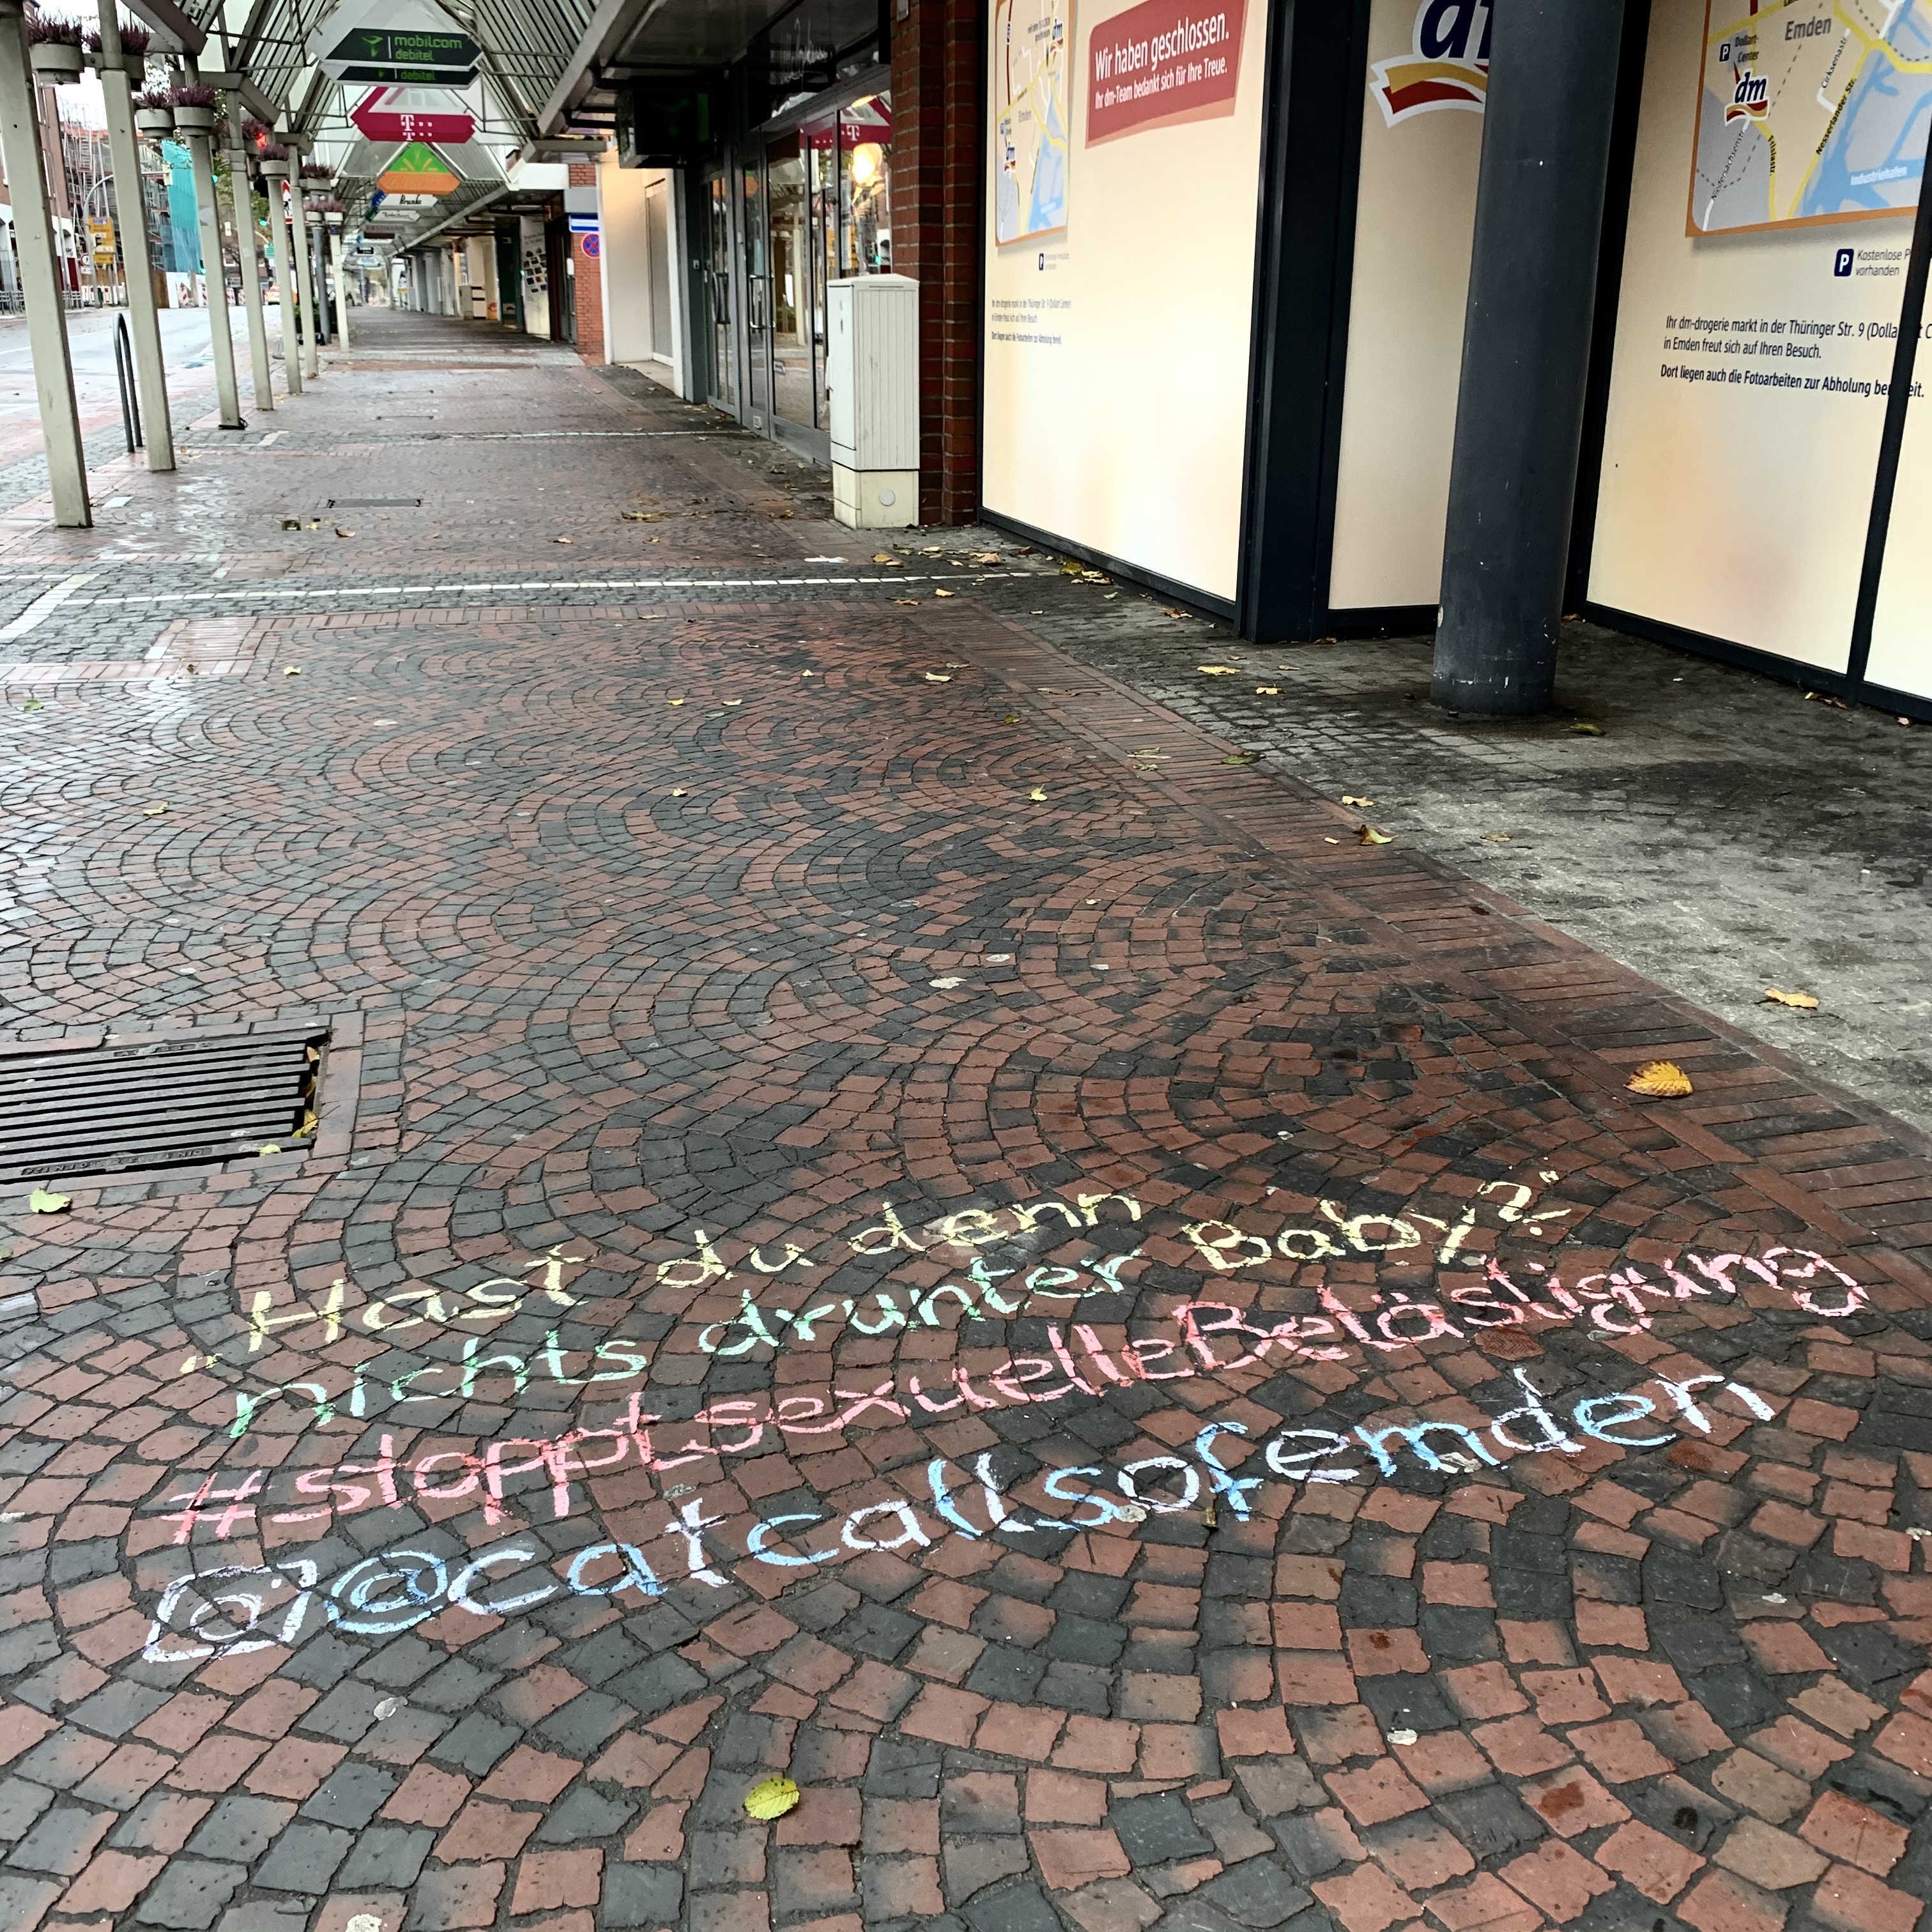 mobilcom
debitel
debitel
T
Wir haben geschlossen.
Ihr dm-Team bedankt sich für Ihre Treue.
dm
Emden
P
Dollart-
Center
dm
Industriehafen
P
Kostenlose P
vorhanden
Ihr dm-drogerie markt in der Thüringer Str. 9 (Dolla
in Emden freut sich auf Ihren Besuch.
Dort liegen auch die Fotoarbeiten zur Abholung
„Hast du denn
nichts drunter Baby?“
#stopptsexuelleBelästigung
@catcallsofemden